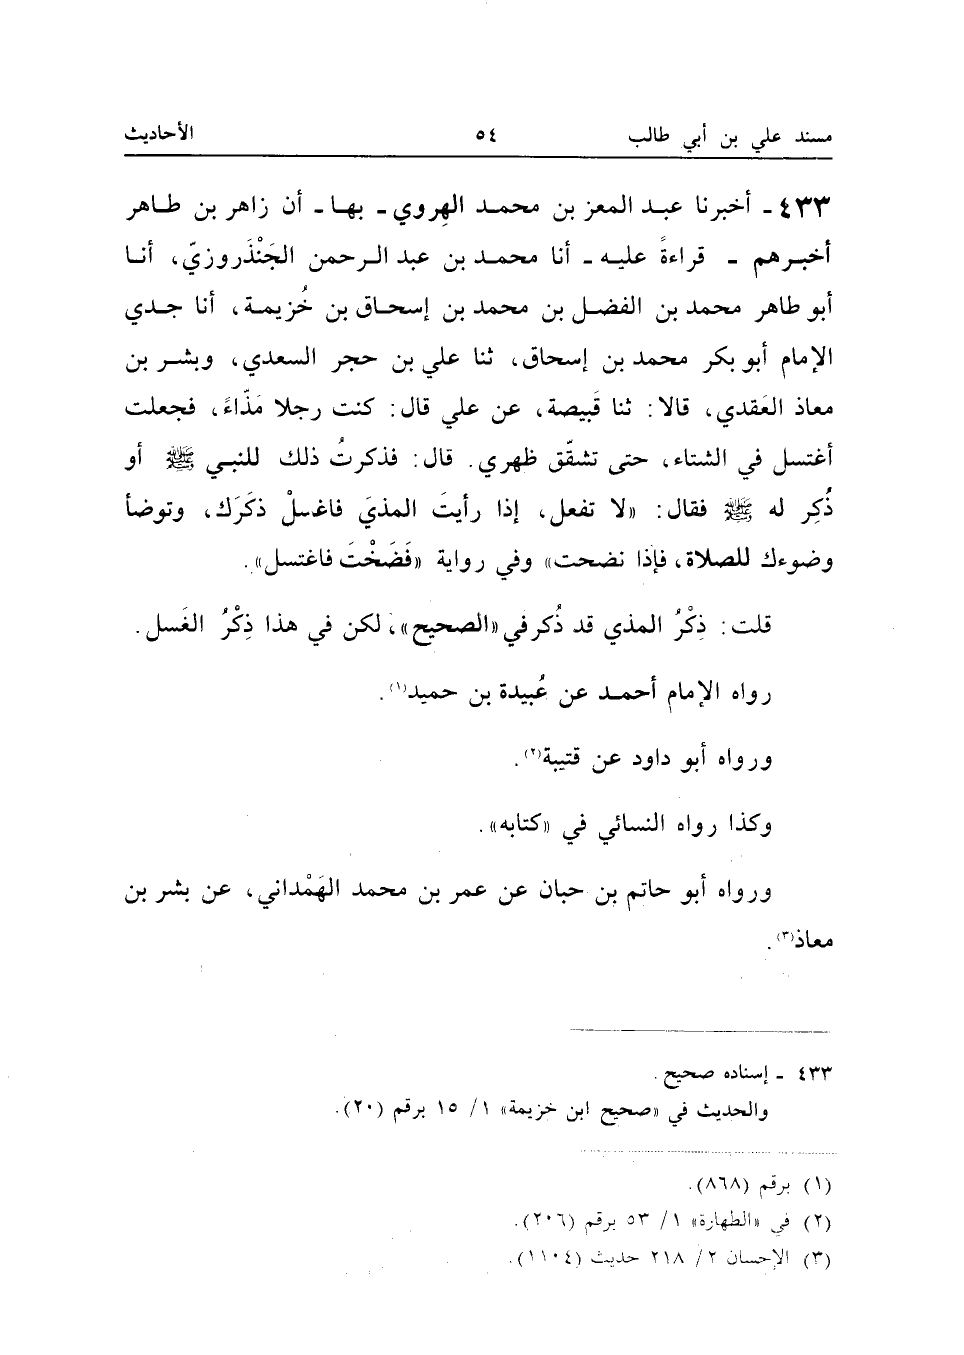 مسند علي بن أبي طالب ٥٤ الأحاديث
٤٣٣ - أخبرنا عبد المعز بن محمد الهِروي - بها - أن زاهر بن طاهر
أخبرهم - قراءةً عليه - أنا محمد بن عبد الرحمن الجَنْذَروزيّ، أنا
أبو طاهر محمد بن الفضل بن محمد بن إسحاق بن خُزيمة، أنا جدي
الإمام أبو بكر محمد بن إسحاق، ثنا علي بن حجر السعدي، وبشر بن
معاذ العَقدي، قالا: ثنا قَبيصة، عن علي قال: كنت رجلا مَذّاءً، فجعلت
أغتسل في الشتاء، حتى تشقّق ظهري. قال: فذكرتُ ذلك للنبي ﷺ أو
ذُكِر له ﷺ فقال: «لا تفعل، إذا رأيتَ المذيَ فاغسلْ ذكَرَك، وتوضأ
وضوءك للصلاة، فإذا نضحت» وفي رواية «فَضَخْتَ فاغتسل».
قلت: ذِكْرُ المذي قد ذُكر في «الصحيح»، لكن في هذا ذِكْرُ الغَسل.
رواه الإمام أحمد عن عُبيدة بن حميد(١).
ورواه أبو داود عن قتيبة(٢).
وكذا رواه النسائي في «كتابه».
ورواه أبو حاتم بن حبان عن عمر بن محمد الهَمْداني، عن بشر بن
معاذ(٣).
٤٣٣ - إسناده صحيح.
والحديث في «صحيح ابن خزيمة» ١/ ١٥ برقم (٢٠).
(١) برقم (٨٦٨).
(٢) في «الطهارة» ١/ ٥٣ برقم (٢٠٦).
(٣) الإحسان ٢/ ٢١٨ حديث (١١٠٤).